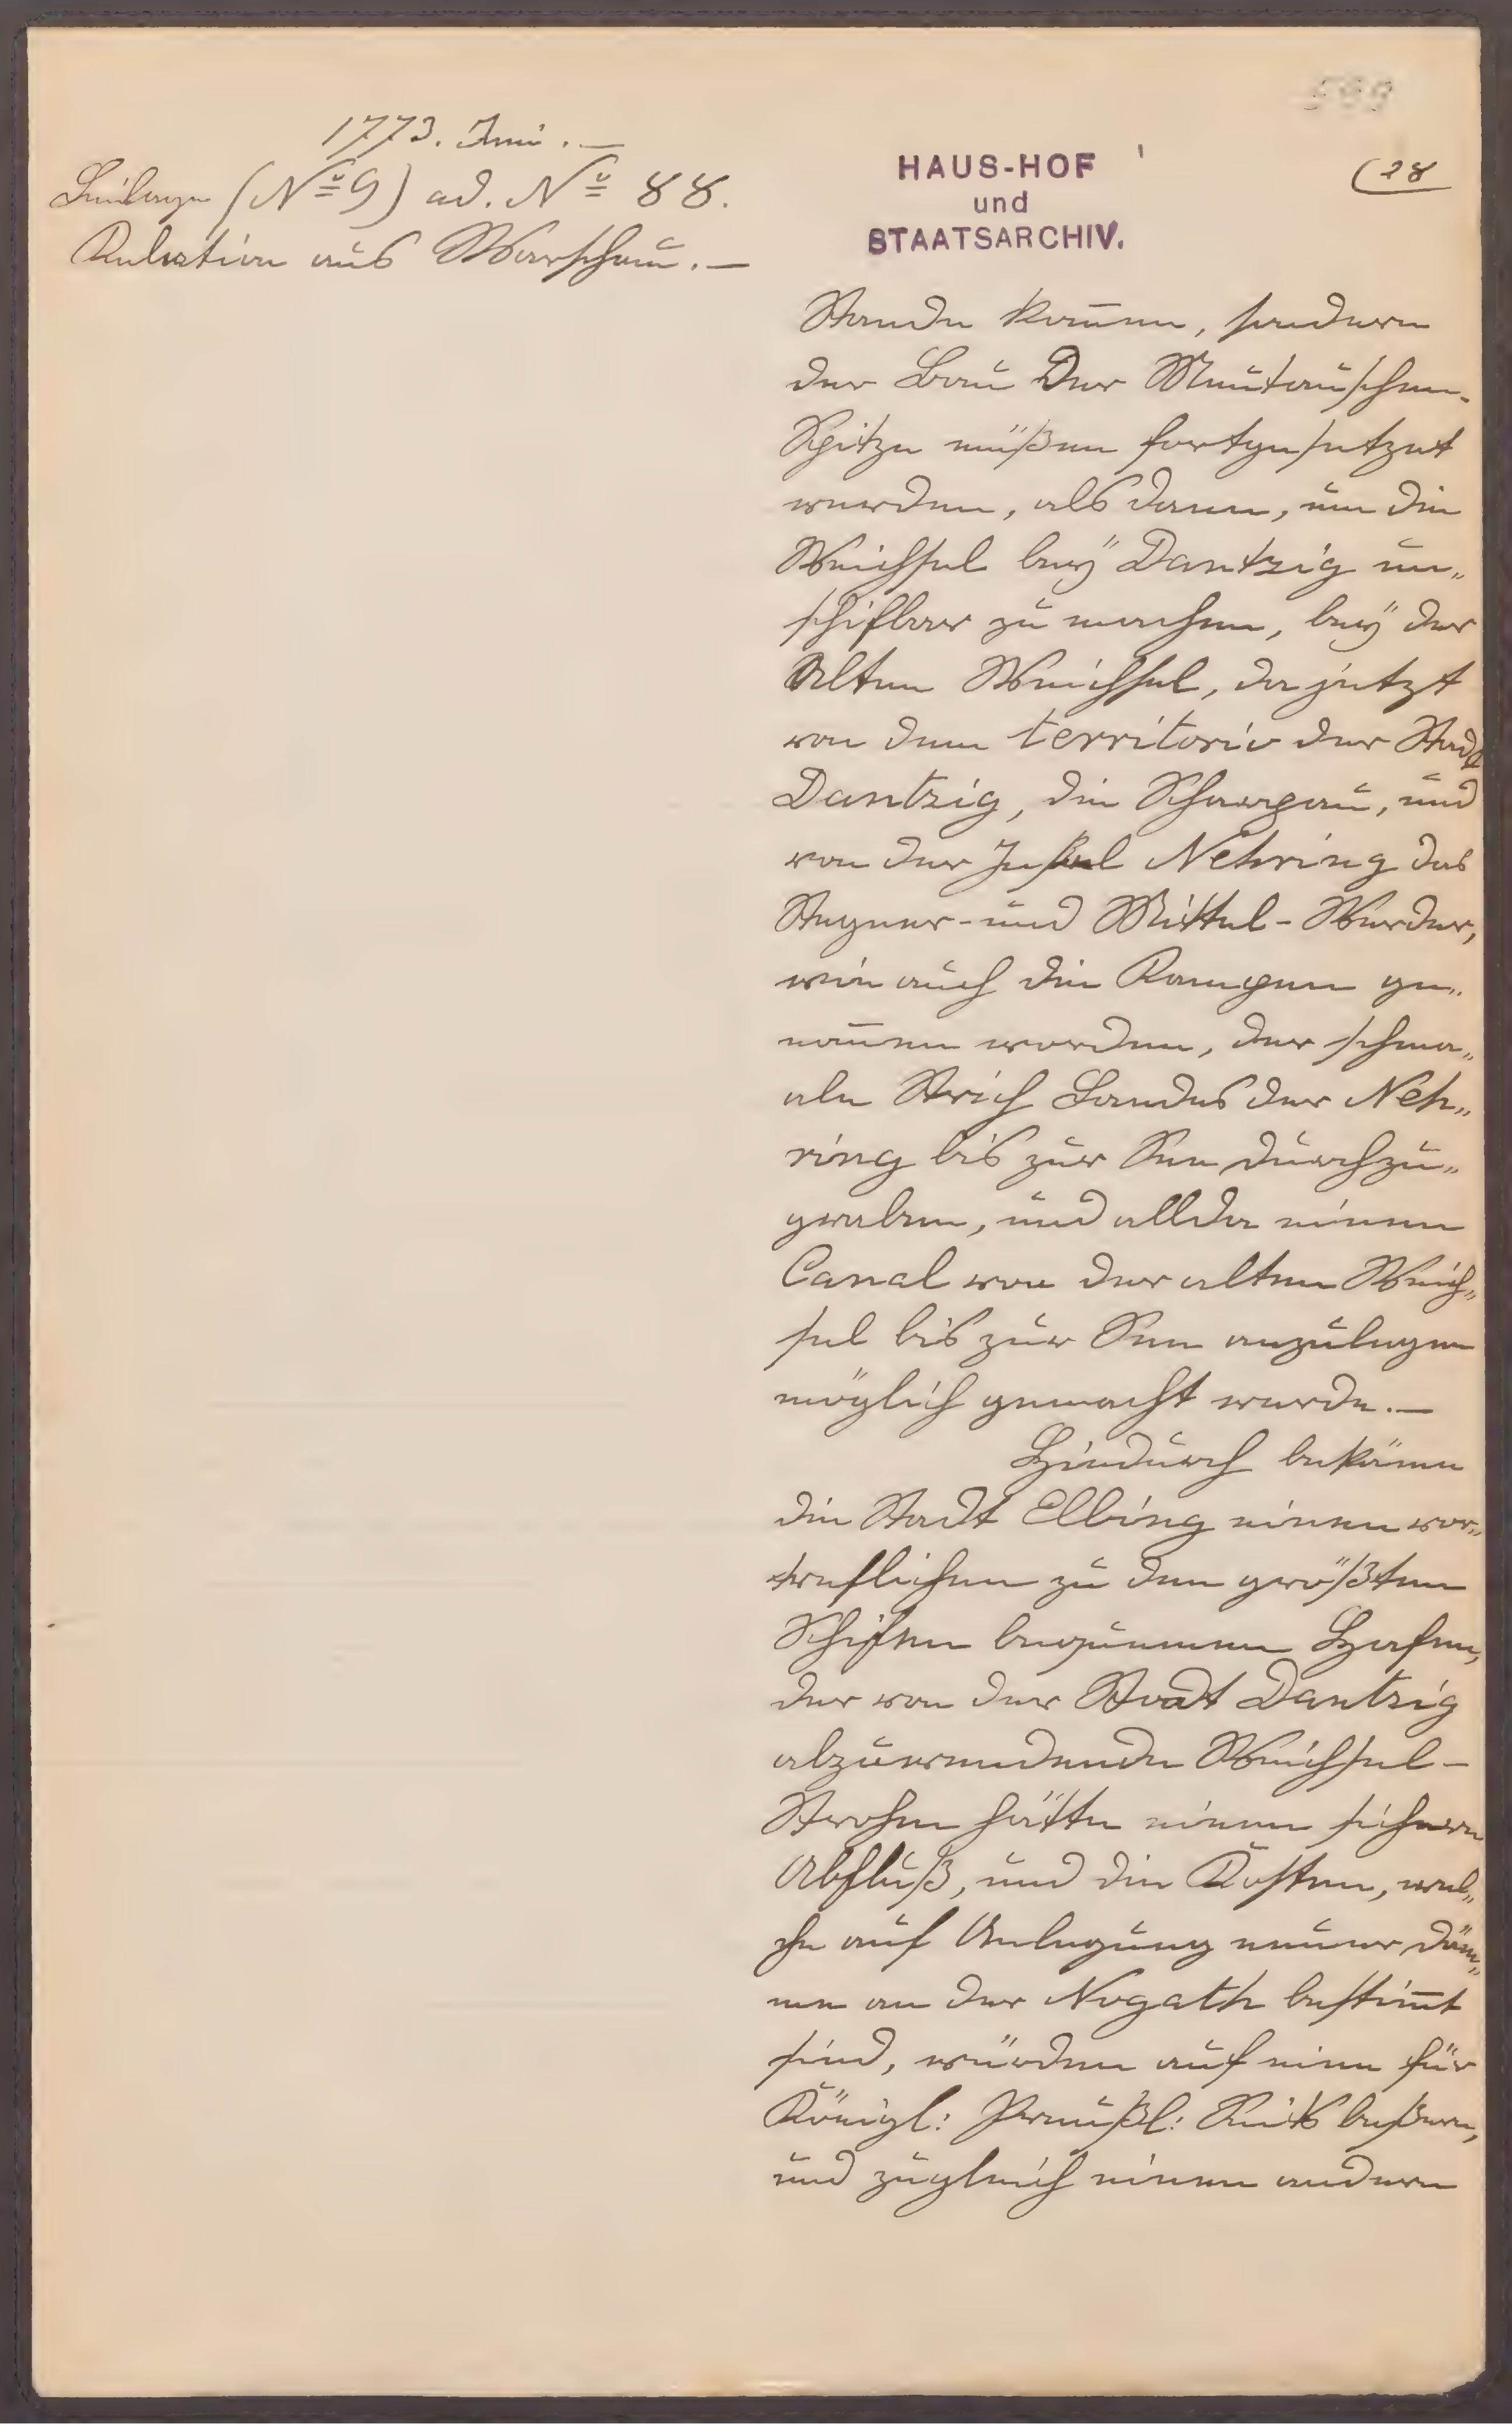 599
1773. Juni. —
Beilage (Nº 9) ad. Nº 88.
Relation aus Warschau. —
HAUS-HOF
und
STAATSARCHIV.
(28
Stande kom̄en, sondern
der Bau Der Meutauschen-
Spitze müßen fortgesetzet
werden, als dann, um die
Weichsel beÿ Dantzig un„
schifbar zu machen, beÿ der
Alten Weichsel, da jetzt
von dem territorio der Stadt
Dantzig, die Scharpau, und
von der Jnsel Nehring das
Stegner- und Mittel-Werder,
wie auch die Kampen ge„
nom̄en worden, der schma„
ale Strich Landes der Neh„
ring bis zur See durchzu„
graben, und allda einen
Canal von der alten Weich„
sel bis zur See anzulegen
möglich gemacht werde. —
Hiedurch bekäme
die Stadt Elbing einen vor„
treflichen zu den größten
Schifen bequemen Hafen,
der von der Stadt Dantzig
abzuwendende Weichsel-
Strohm hätte einen sichern
Abfluß, und die Kosten, wel„
che auf Anlegung neuer Däm„
me an der Nogath bestim̄t
sind, würden auf eine für
Königl: Preußl: Seits beßere,
und zugleich einen andern